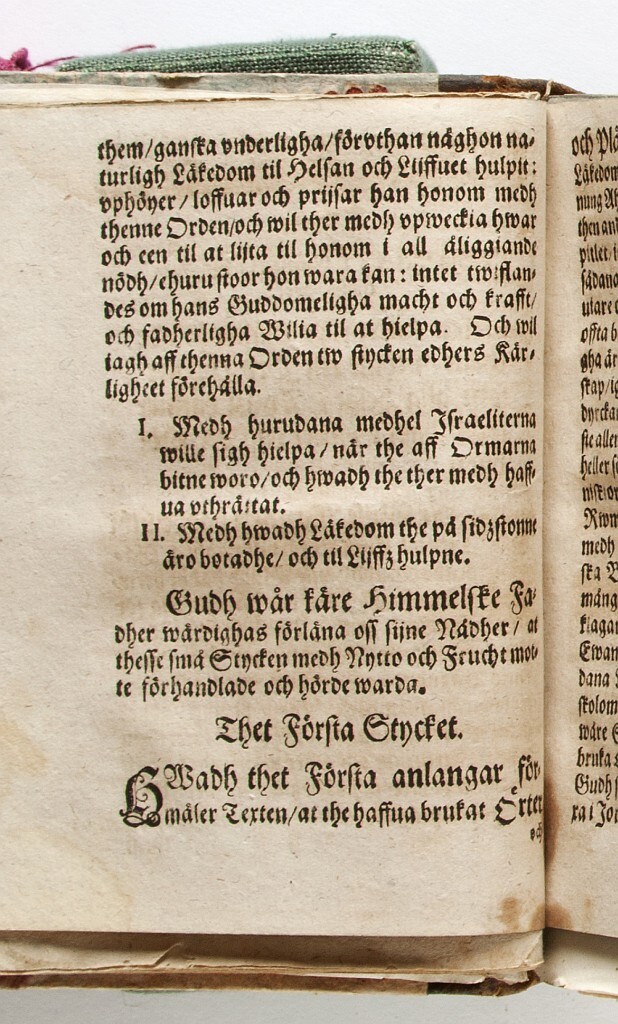 them/ganska vnderligha/förvthan någhon na-
turligh Läkedom til Helsan och Lijffuet hulpit:
vphöyer/ loffuar och prijsar han honom medh
thenne Orden/och wil ther medh vpweckia hwar
och een til at lijta til honom i all åliggiande
nödh/ehuru stoor hon wara kan: intet twiflan-
des om hans Guddomeligha macht och krafft/
och fadherligha Wilia til at hielpa. Och wil
iagh aff thenna Orden tw stycken edhers Kär-
ligheet förehålla.
I. Medh hurudana medhel Israeliterna
wille sigh hielpa/ när the aff Ormarna
bitne woro/och hwadh the ther medh haff-
ua vthrättat.
II. Medh hwadh Läkedom the på sidzstonne
äro botadhe/ och til Lijffz hulpne.
Gudh wår käre Himmelske Fa-
dher wärdighas förläna oss sijne Nådher/ at
thesse små Stycken medh Nytto och Frucht mot-
te förhandlade och hörde warda.
Thet Första Stycket.
HWadh thet Första anlangar för-
mäler Texten/at the haffua brukat Örter
och
och
Läkedom
nung
then and
sådana
offta b
gha är
dyrcka
sie aller
heller s
medh
ska
mång
klagar
Ewan
dana
skolom
wåre
bruka
Gudh